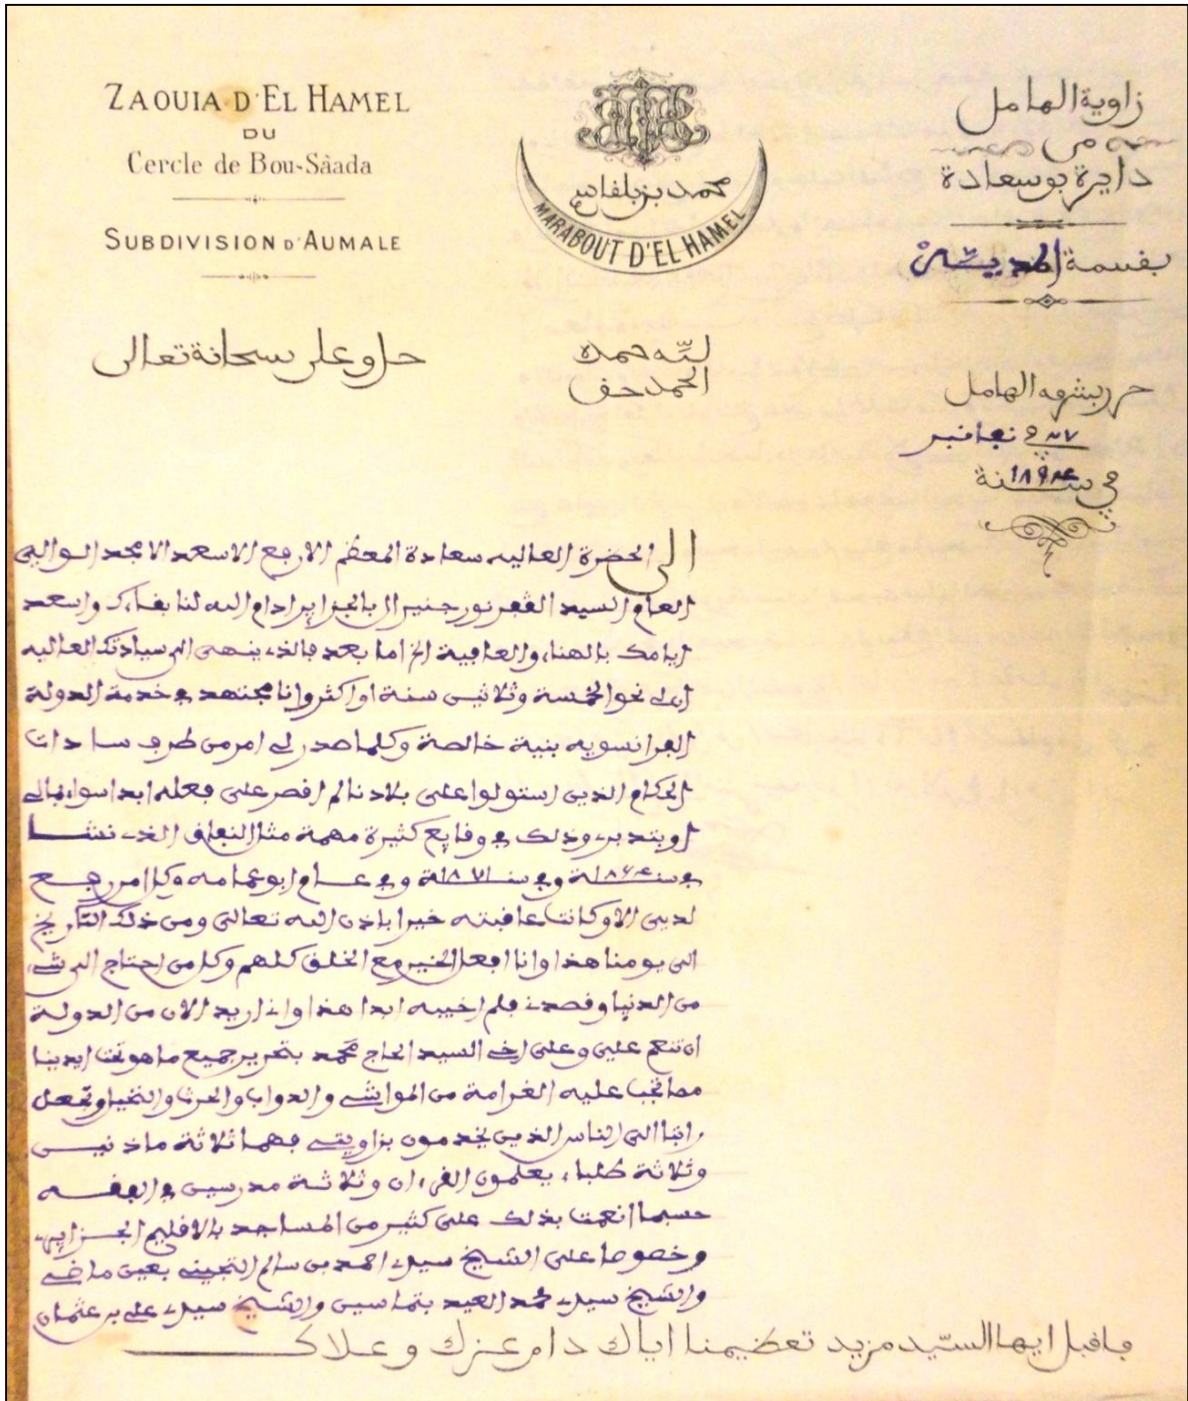 ZAOUIA D'EL HAMEL
DU
Cercle de Bou-Sâada
SUBDIVISION D'AUMALE
محمد بن بلقاسم
MARABOUT D'EL HAMEL
زاوية الهامل
من
دايرة بوسعادة
بقسمة
لله حمده
الحمد حق
جل وعلى سبحانه تعالى
حرر بشهر الهامل
نوفمبر
في سنة ١٨٩٤
الى الحضرة العالية سعادة المعظم الارفع الاسعد الامجد الوالي
العام السيد القفرنور جنيرال بالجزاير ادام الله لنا بقاءك واسعد
ايامك بالهناء والعافية اما بعد فالذي ينهى الى سيادتك العالية
ان لي نحو الخمسة وثلاثين سنة او اكثر وانا مجتهد في خدمة الدولة
الفرانسوية بنية خالصة وكلما صدر لي امر من طرف سادات
الحكام الذين استولوا على بلادنا لم اقصر على فعله ابدا سواء بمالي
او بتدبيري وذلك في وقايع كثيرة مهمة مثل النفاق الذي نشا
في سنة ١٨٦٤ وفي سنة ١٨٧١ وفي عام ابو عمامه وكل امر رجع
لديى الا وكانت عافبته خيرا باذن الله تعالى ومن ذلك التاريخ
الى يومنا هذا وانا افعل الخير مع الخلق كلهم وكل من احتاج الى شيء
من الدنيا وقصدني فلم اخيبه ابدا هذا واني اريد الان من الدولة
ان تنعم علي وعلى اخي السيد الحاج محمد بتحرير جميع ما هو تحت ايدينا
مما تجب عليه الغرامة من المواشي والدواب والحرث والنخيل وتجعل
راتبا الى الناس الذين يخدمون بزاويتي فهما ثلاثة ماذنيين
وثلاثة طلباء يعلمون القرءان وثلاثة مدرسين في الفقه
حسبما انعمت بذلك على كثير من المساجد بالاقليم الجزايري
وخصوصا على الشيخ سيدي احمد بن سالم التجيني بعين ماضي
والشيخ سيدي محمد العيد بتماسين والشيخ سيدي علي بن عثمان
فاقبل ايها السيد مزيد تعظيمنا اياك دام عزك وعلاك